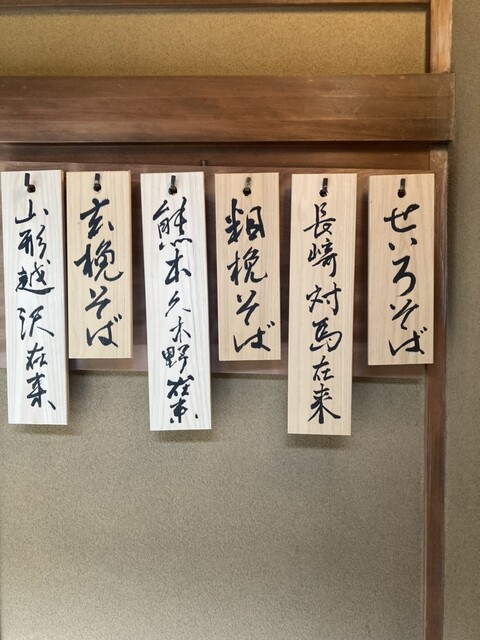 せいろそば
長崎対馬在来
粗挽そば
熊本八木野在来
玄挽そば
山形越沢在来